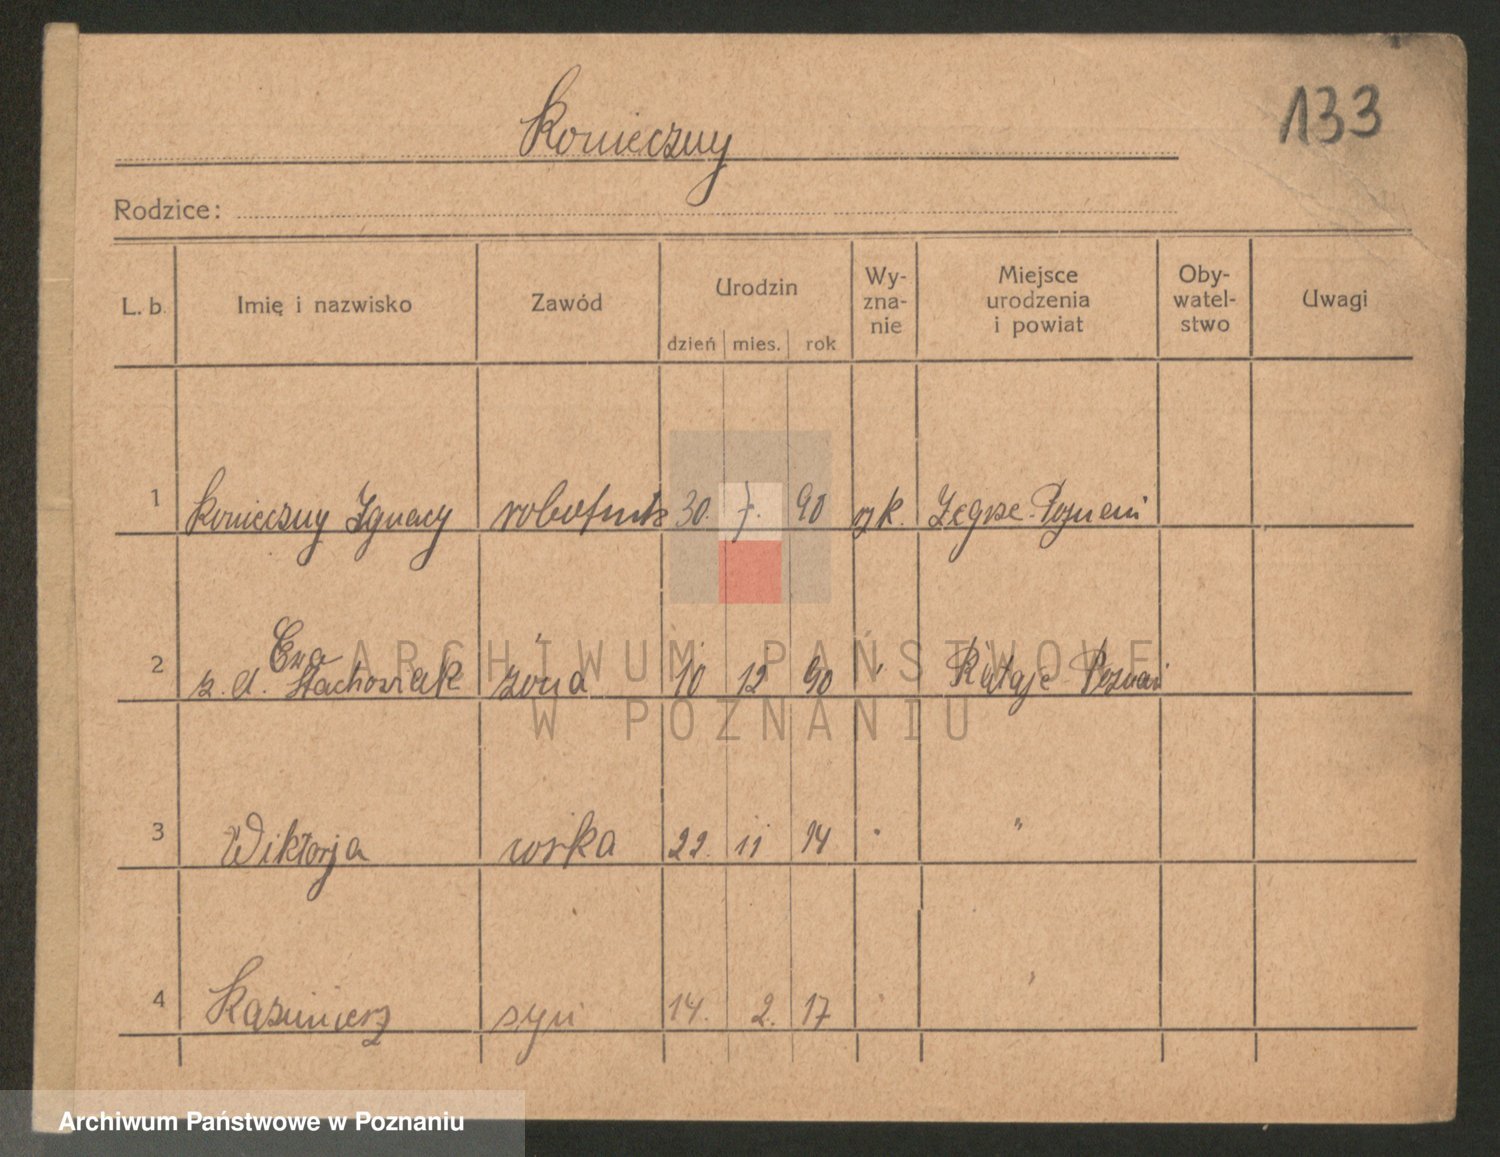 Konieczny
133
Rodzice:
L. b. Imię i nazwisko Zawód Urodzin dzień mies. rok Wy-zna-nie Miejsce urodzenia i powiat Oby-watel-stwo Uwagi
1 Konieczny Ignacy robotnik 30. 7. 90 rzk. Żegrze - Poznań
Ewa
2 z. d. Stachowiak żona 10 12 90 " Rataje Poznań
3 Wiktorja córka 22. 11 14 " "
4 Kazimierz syn 14. 2. 17 " "
ARCHIWUM PAŃSTWOWE
W POZNANIU
Archiwum Państwowe w Poznaniu